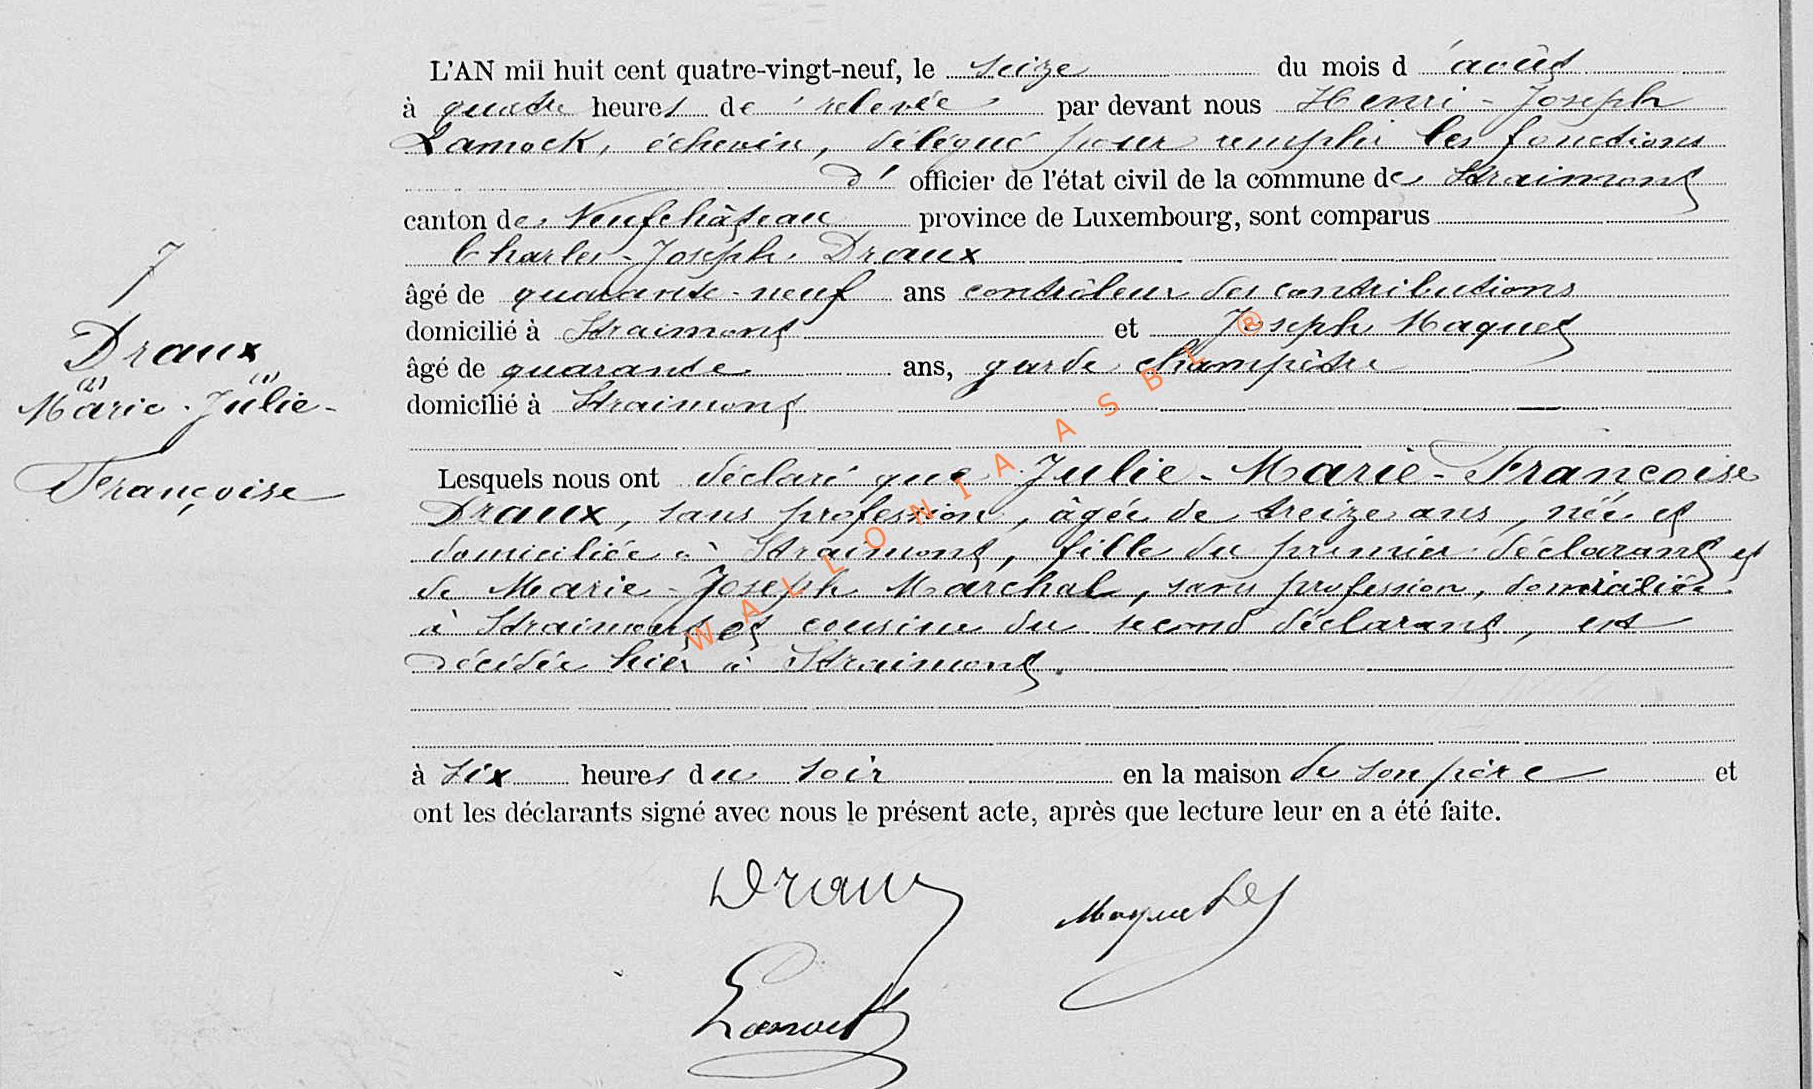 L'AN mil huit cent quatre-vingt-neuf, le seize du mois d'août
à quatre heures de relevée par devant nous Henri-Joseph
Lamock, échevin, délégué pour remplir les fonctions
d'officier de l'état civil de la commune de Straimont
canton de Neufchâteau province de Luxembourg, sont comparus
Charles-Joseph Draux
âgé de quarante-neuf ans contrôleur des contributions
domicilié à Straimont et Joseph Maquet
âgé de quarante ans, garde champêtre
domicilié à Straimont
Lesquels nous ont déclaré que Julie-Marie-Françoise
Draux, sans profession, âgée de treize ans, née et
domiciliée à Straimont, fille du premier déclarant et
de Marie-Joseph Marchal, sans profession, domiciliée
à Straimont et cousine du second déclarant, est
décédée hier à Straimont.
à six heures du soir en la maison de son père et
ont les déclarants signé avec nous le présent acte, après que lecture leur en a été faite.
7
Draux
(2) (1)
Marie-Julie-
Françoise
Draux
Maquet
Lamock
WALLONIA ASBL ®